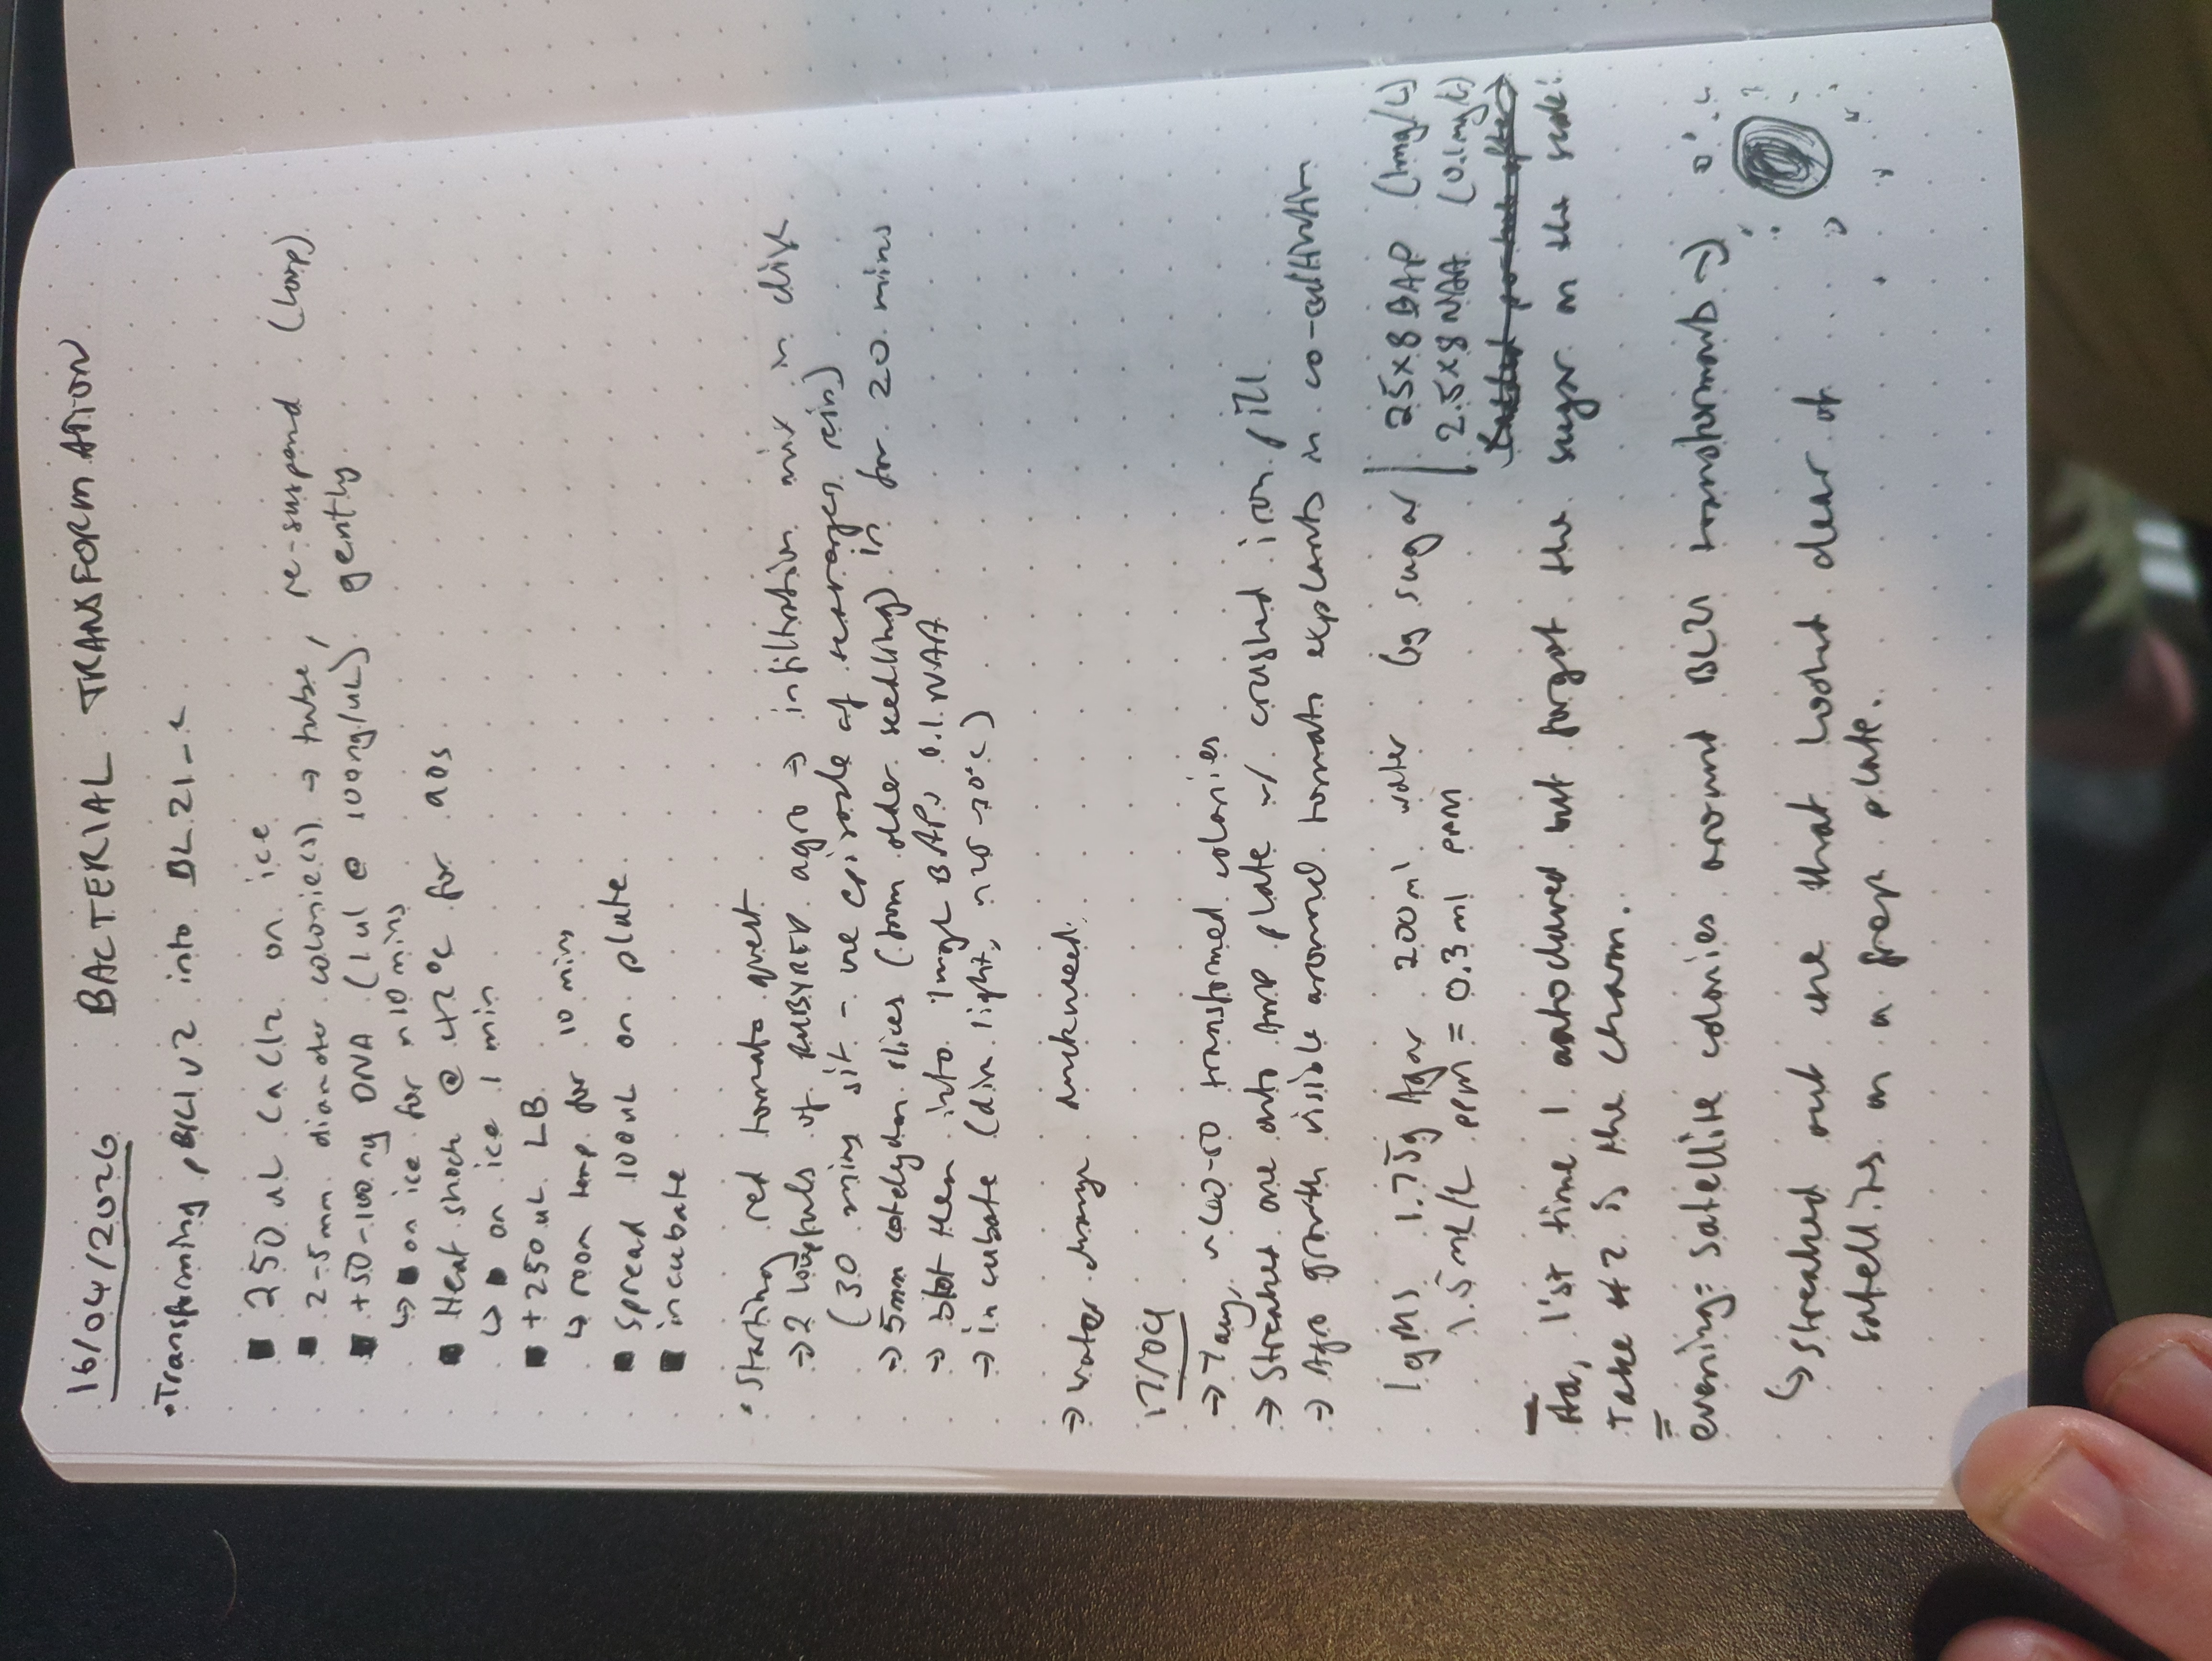 16/04/2026 BACTERIAL TRANSFORMATION
• Transforming into BL21
250 uL CaCl2 on ice
2-5mm diameter colonie(s) → tube, re-suspend (loop)
+50-100ng DNA (1 ul @ 100ng/uL) gently
↳ on ice for ~10 mins
Heat shock @ 42°C for 90s
↳ on ice 1 min
+250uL LB
↳ room temp for 10 mins
spread 100uL on plate
incubate
• Starting red tomato quest
→ 2 loopfuls of RUBYRED agro → infiltration mix in dish
(30 mins sit - use epi scale of reins)
→ 5mm cotyledon slices (from older seedling) in for 20 mins
→ blot then into 1mg/L BAP, 0.1 NAA
→ incubate (dim light, ~20°C)
→ water change duckweed.
17/04
→ 7am, ~40-50 transformed colonies
→ Streaked one onto AMP plate w/ crushed iron pill
→ Agro growth visible around tomato explants in co-cultivation
1g MS 1.75g Agar 200ml water 6g sugar | 25x8 BAP (1mg/L)
1.5mL/L PPM = 0.3ml PPM | 2.5x8 NAA (0.1mg/L)
Ha, 1st time I autoclaved but forgot the sugar on the scale.
Take #2 is the charm.
evening: satellite colonies around BL21 transformants →
↳ streaked out one that looked clear of
satellites on a fresh plate.